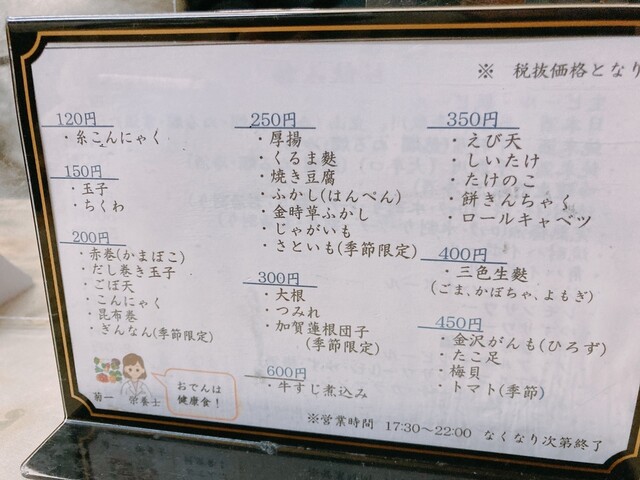 ※ 税抜価格となり
120円
・糸こんにゃく
150円
・玉子
・ちくわ
200円
・赤巻(かまぼこ)
・だし巻き玉子
・ごぼ天
・こんにゃく
・昆布巻
・ぎんなん(季節限定)
250円
・厚揚
・くるま麩
・焼き豆腐
・ふかし(はんぺん)
・金時草ふかし
・じゃがいも
・さといも(季節限定)
300円
・大根
・つみれ
・加賀蓮根団子
(季節限定)
600円
・牛すじ煮込み
350円
・えび天
・しいたけ
・たけのこ
・餅きんちゃく
・ロールキャベツ
400円
・三色生麩
(ごま、かぼちゃ、よもぎ)
450円
・金沢がんも(ひろず)
・たこ足
・梅貝
・トマト(季節)
菊一 栄養士
おでんは
健康食!
※営業時間 17:30～22:00 なくなり次第終了